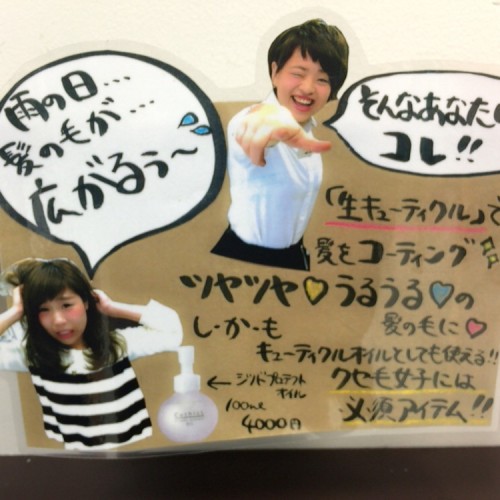 雨の日…
髪の毛が…
広がるぅ〜
そんなあなたに
コレ!!
「生キューティクル」で
髪をコーティング
ツヤツヤ♡うるうる♡の
髪の毛に♡
し・か・も
キューティクルオイルとしても使える!!
クセ毛女子には
必須アイテム!!
← ジンドプロテクト
オイル
100ml
4000円